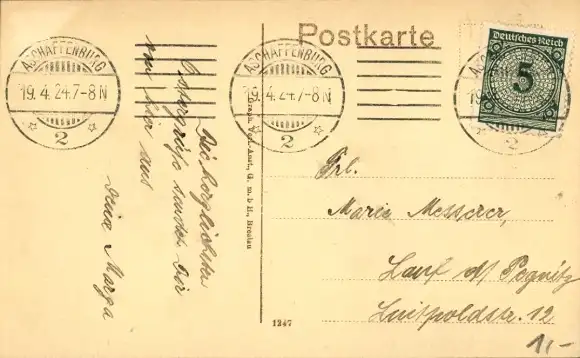 Postkarte
Deutsches Reich
5
ASCHAFFENBURG
19.4.24.7-8N
2
ASCHAFFENBURG
19.4.24.7-8N
2
Die herzlichsten
Ostergrüße sendet Dir
von hier aus
Deine Marga
Graph. Verl.-Anst., G. m. b. H., Breslau
1247
Frl.
Maria Messerer,
Lauf a/ Pegnitz
Luitpoldstr. 12
1,-